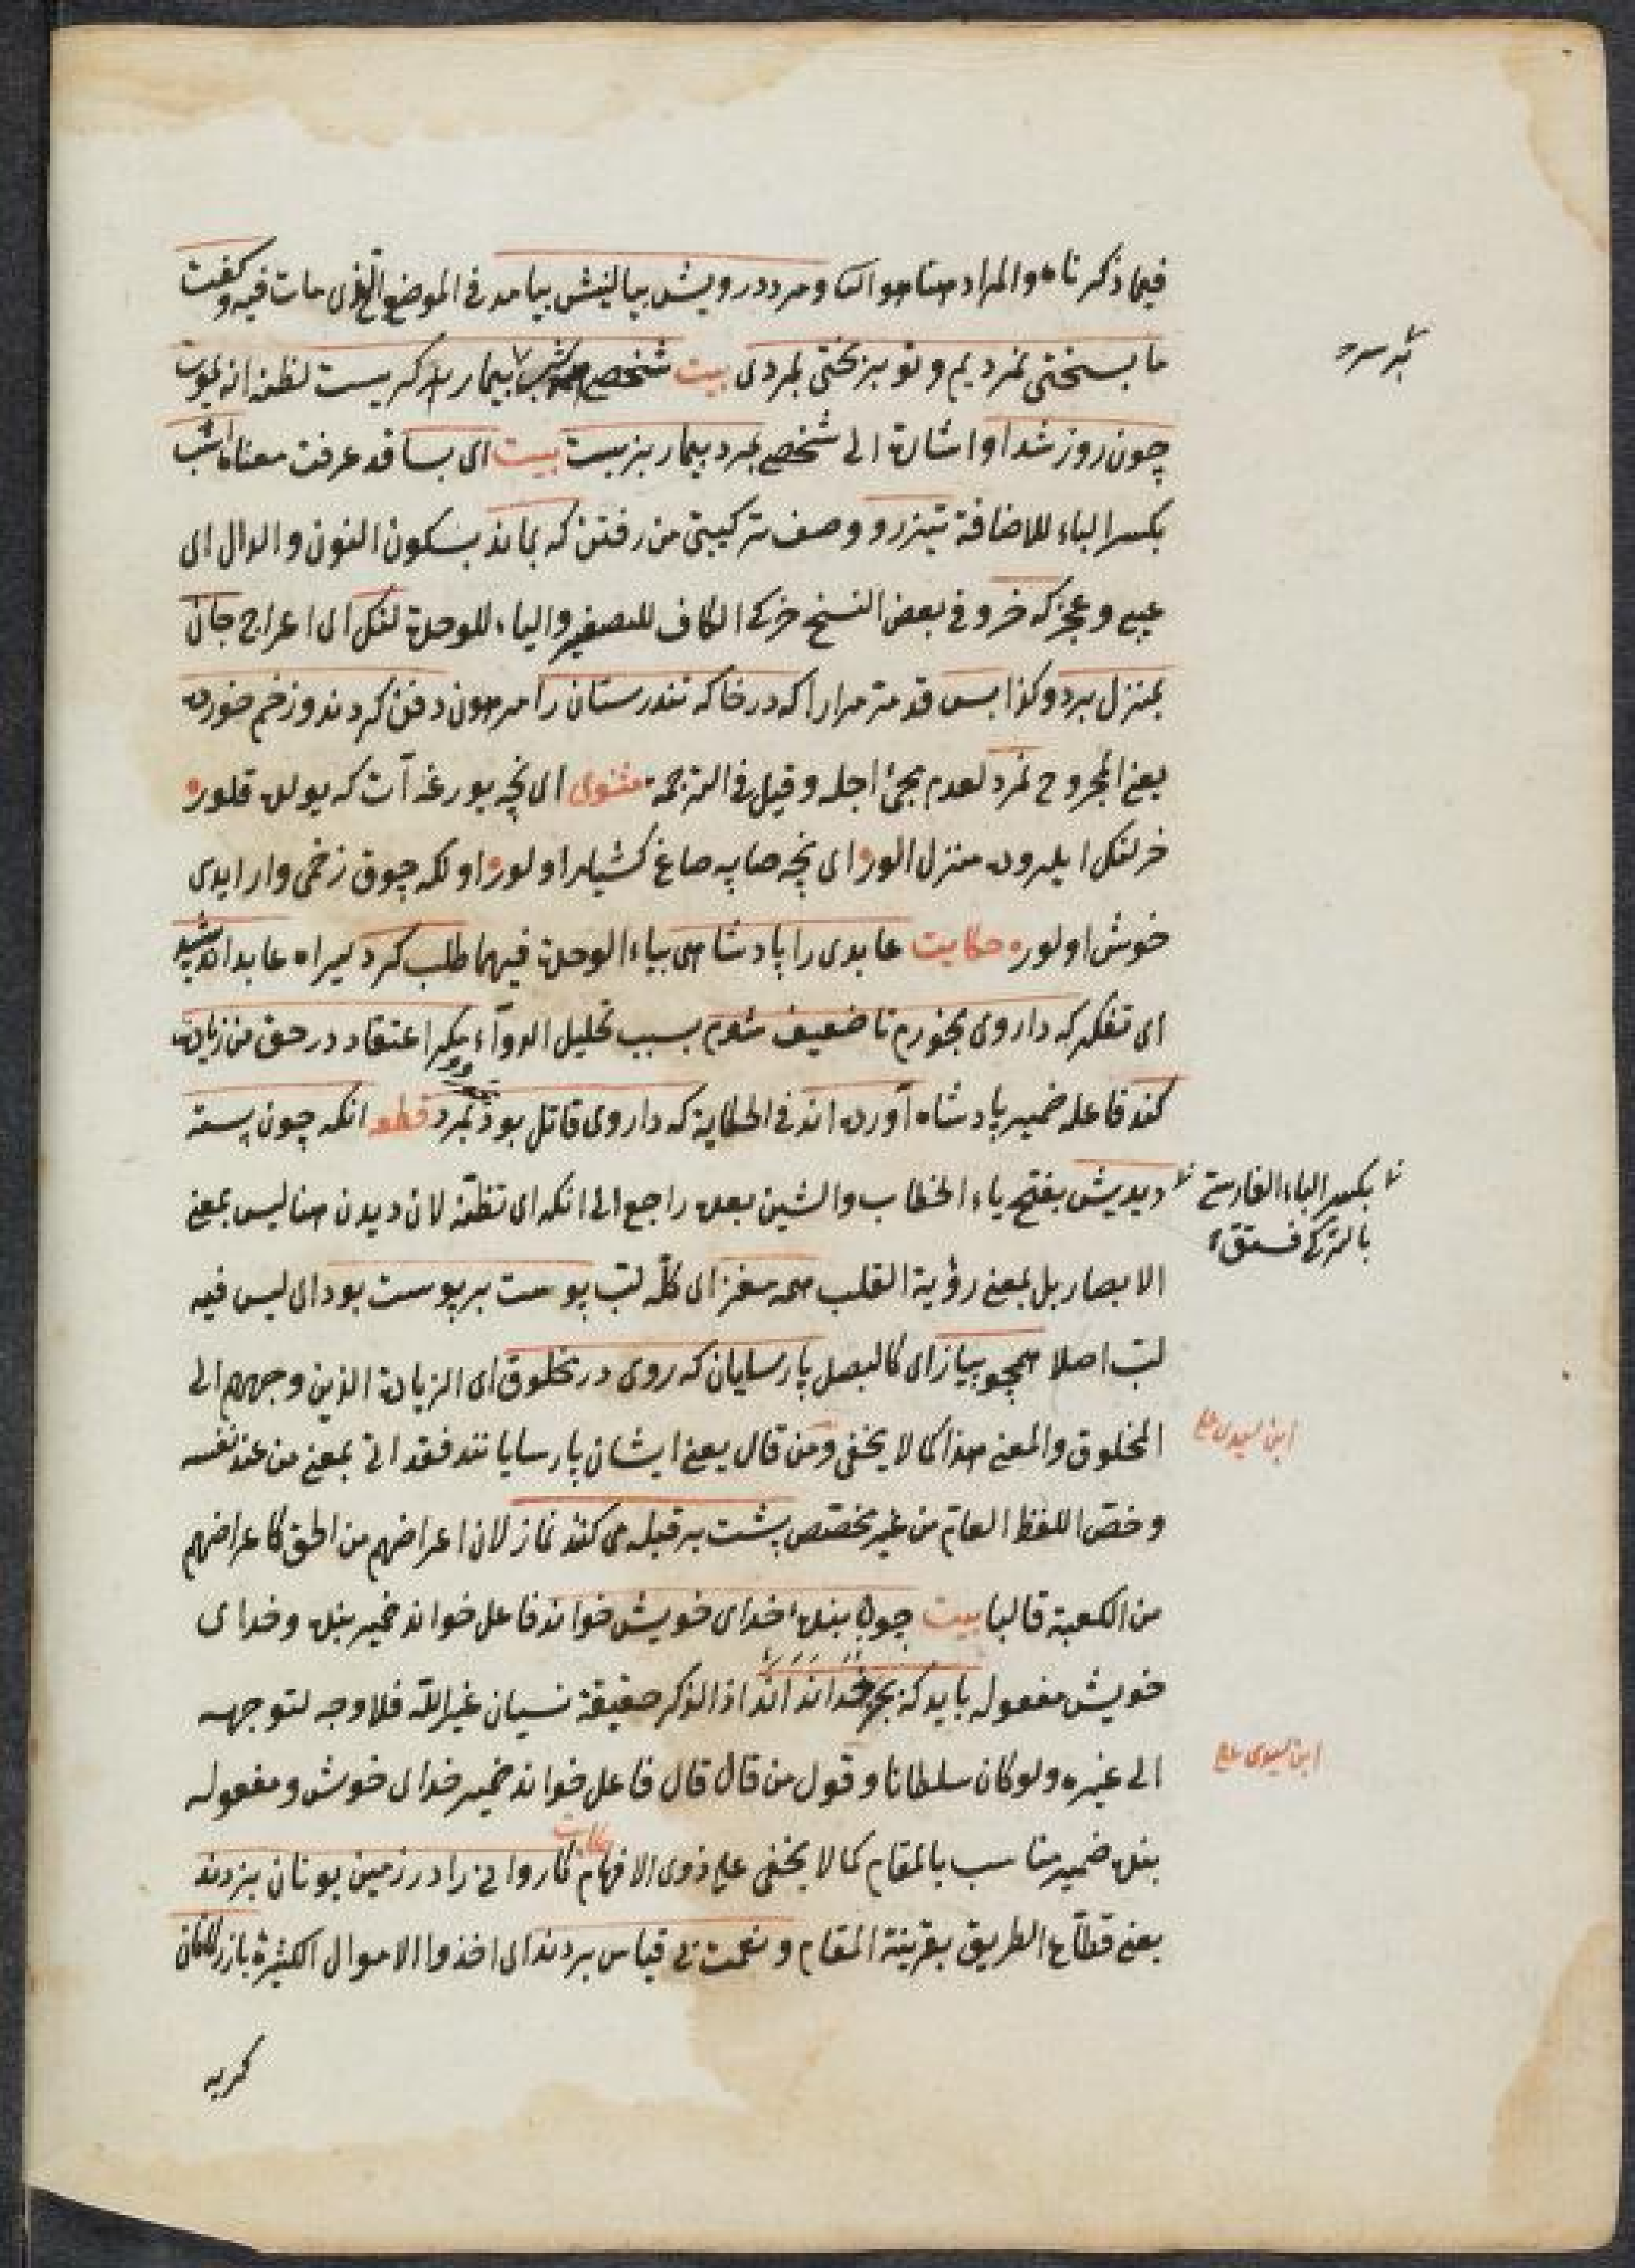 فيما ذكرناه والمراد هنا هو الثا ومرد درويش ببالينش بيامد في الموضع الذى مات فيه وكفت
ما بسختى نمرديم وتو بر بختى بمردى بيت شخصى همه شب بيمار كريست لظنه انه يموت
چون روز شد او اشارة الى شخصى بمرد بيمار بزيست بيت اى بسا قد عرفت معناه اسب
بكسر الباء للاضافة تيزرو وصف تركيبى من رفتن كه بماند بسكون النون والدال اى
عيى وعجز كه خر وفي بعض النسخ خركى الكاف للتصغير والياء للوحدة لنك اى اعرج جان
بمنزل برد وكذا بس قد مر مرارا كه در خاك تندرستان را مرهون دفن كردند وزخم خورده
يعنى المجروح نمرد لعدم مجئ اجله وقيل في الترجمه مثنوى اى نچه يورغه آت كه يولده قلور
خر لنك ايلرون منزل الور اى نچه صاپه صاغ كشيلر اولور اولكه چوق زخمى وار ايدى
خوش اولور حكايت عابدى را پادشاهى بياء الوحدة فيهما طلب كرد يراه عابد انديشيد
اى تفكر كه داروى بخورم تا ضعيف شوم بسبب تحليل الدوآء مكر اعتقاد در حق من زيادت
كند فاعله ضمير پادشاه آورده اند في الحكاية كه داروى قاتل بود بمرد قطعه انكه چون پسته
ديديش بفتح ياء الخطاب والشين بعده راجع الى انكه اى تظنه لان ديدن هنا ليس بمعنى
الابصار بل بمعنى رؤية القلب همه مغز اى كله لب پوست بر پوست بود اى ليس فيه
لب اصلا همچو پياز اى كالبصل پارسايان كه روى در مخلوق اى الزيادة الذين وجههم الى
المخلوق والمعنى هذا كما لا يخفى ومن قال يعنى ايشان پارسايانند فقد اتى بمعنى من عند نفسه
وخص اللفظ العام من غير مخصص پشت بر قبله مى كنند نماز لان اعراضهم من الحق كاعراضهم
من الكعبة قالبا بيت چون بنده خداى خويش خواند فاعل خواند ضمير بنده وخداى
خويش مفعوله بايد كه بجز خدا نداند اذ الذكر حقيقة نسيان غير الله فلا وجه لتوجهه
الى غيره ولو كان سلطانا وقول من قال قال فاعل خواند ضمير خداى خوش ومفعوله
بنده ضمير مناسب بالمقام كما لا يخفى على ذوى الافهام حكايت كاروانى را در زمين يونان بزدند
يعنى قطاع الطريق بقرينة المقام ونعمت بى قياس بردند اى اخذوا الاموال الكثيرة بازركانان
كريه
بر سر
بكسر الباء الفارسى
بالتركى فستق
ابن سيدى على
ابن سيدى على